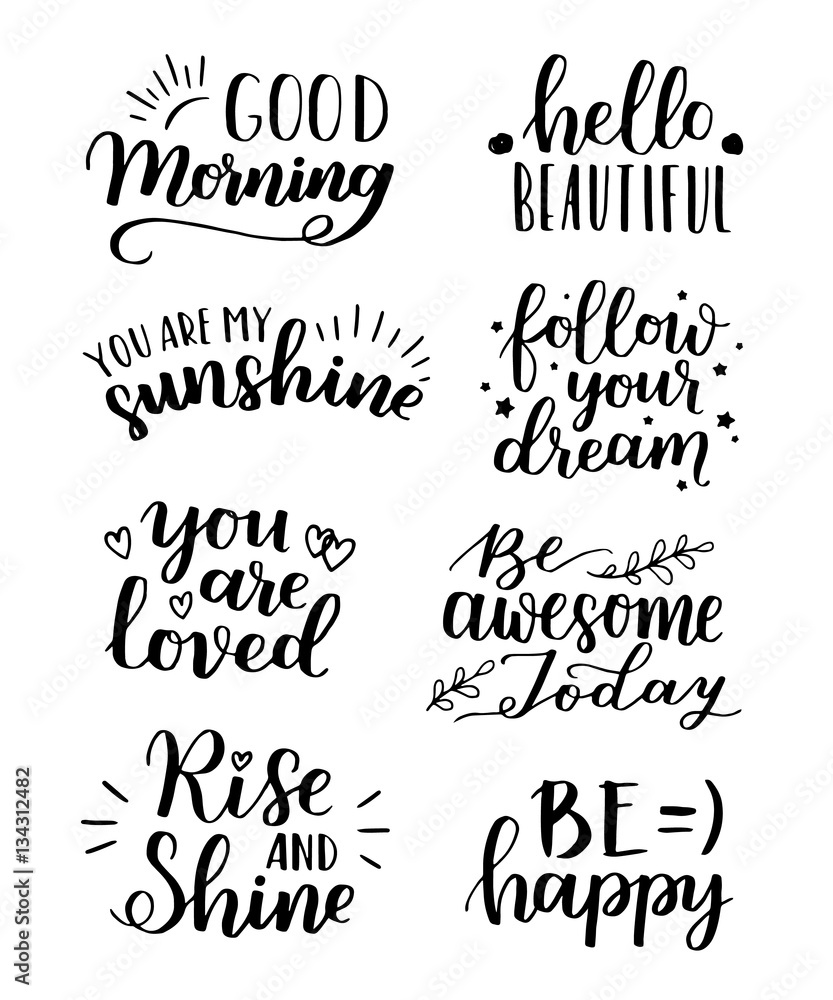 GOOD
Morning
hello
BEAUTIFUL
YOU ARE MY
sunshine
follow
your
dream
you
are
loved
Be
awesome
Today
Rise
AND
Shine
BE =)
happy
Adobe Stock
134312482